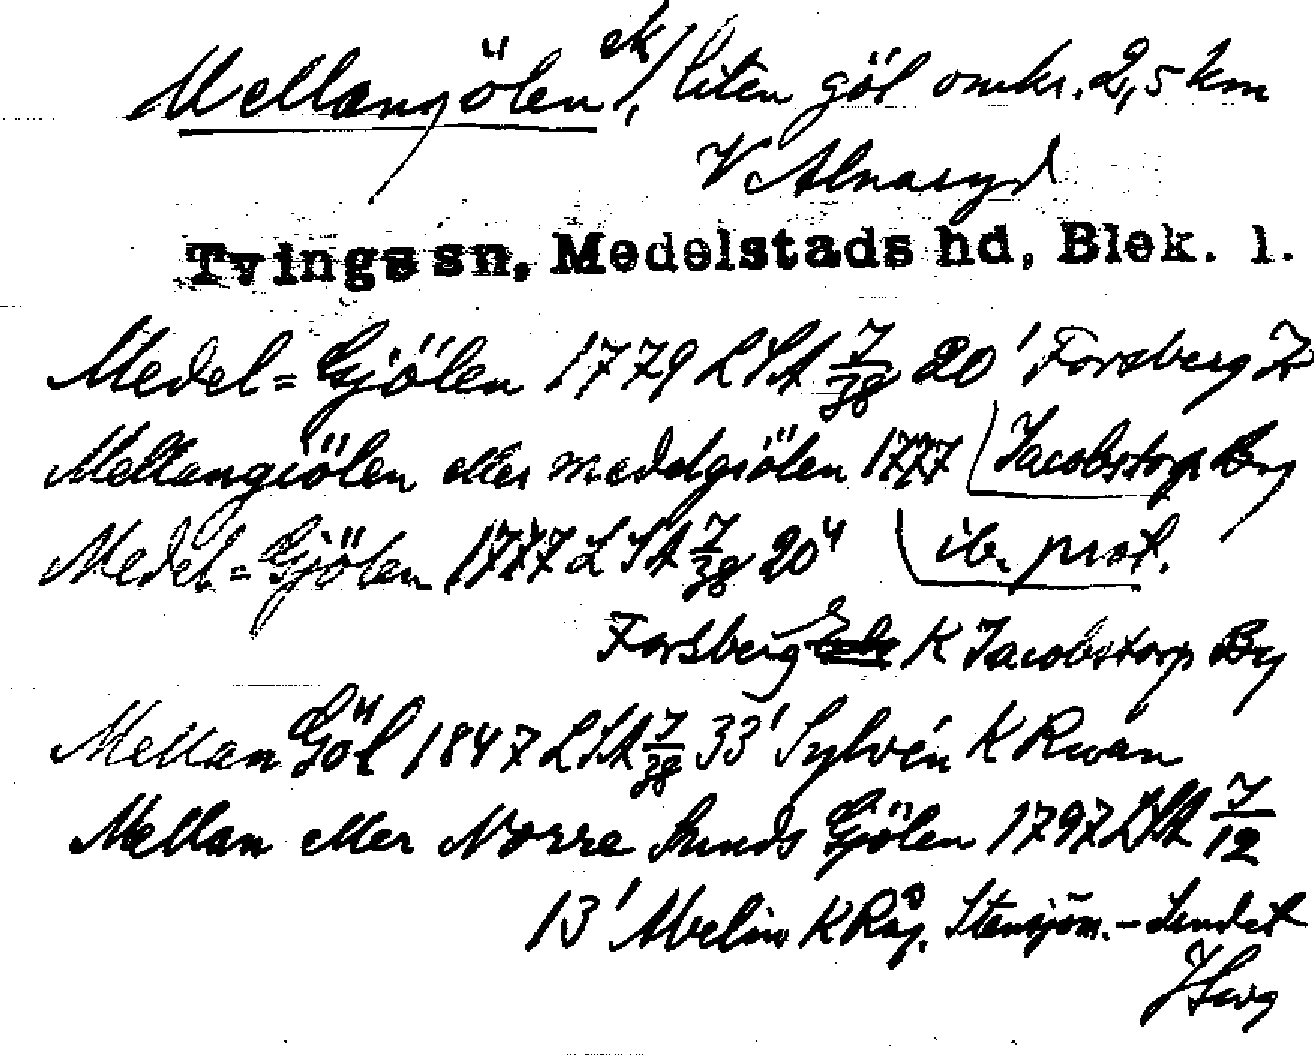 Mellangölen ek/, liten göl omkr. 2,5 km
V Alnaryd
Tvings sn, Medelstads hd, Blek. l.
Medel=Gjölen 1779 LSA J/38 20' Forsberg K
Mellangiölen eller medelgiölen 1777 Jacobstorp By
Medel=Gjölen 1777 LSA J/38 20" ib. prot.
Forsberg K Jacobstorp By
Mellan Göl 1847 LSA J/38 33' Sylvén K
Mellan eller Norre Sunds Gjölen 1797 LSA J/12
13' Abelin K Råg. Stensjöm. – Sundet